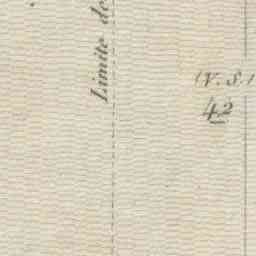 Limite de
(V. S.)
42